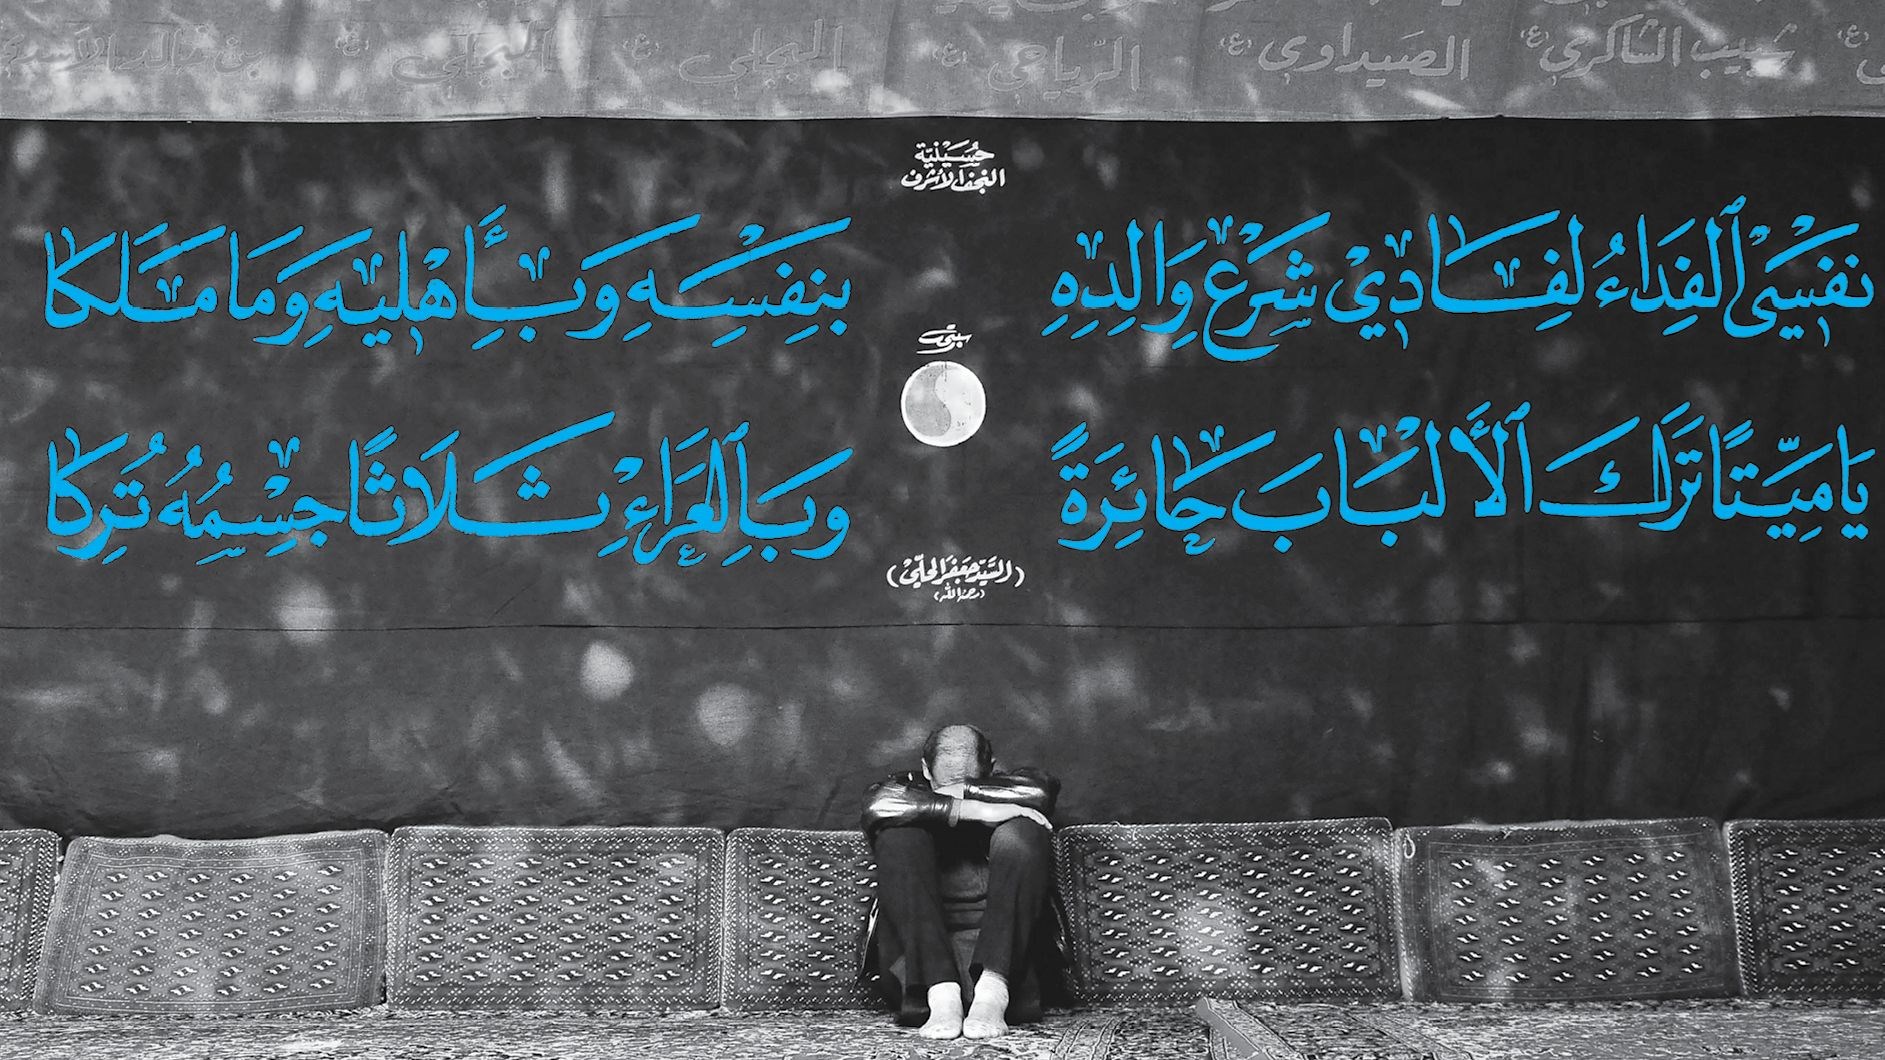 بن خالد الأسدي (ع) البجلي (ع) البجلي (ع) الرّياحي (ع) الصيداوي (ع) شبيب الشاكري (ع)
حُسَيْنيّة
النجف الأشرف
نَفْسْيَ ٱلفِدَاءُ لِفَادِيْ شَرْعِ وَالِدِهِ بِنِفْسِهِ وَبِأَهْلِيهِ وَمَا مَلَكَا
يَا مِيّتًا تَرَكَ ٱلأَلْبَابَ حَائِرَةً وَبِٱلعَرَاءِ ثَلَاثًا جِسْمُهُ تُرِكَا
(السَّيّد جَعفَر الحلّيْ)
(رحمه الله)